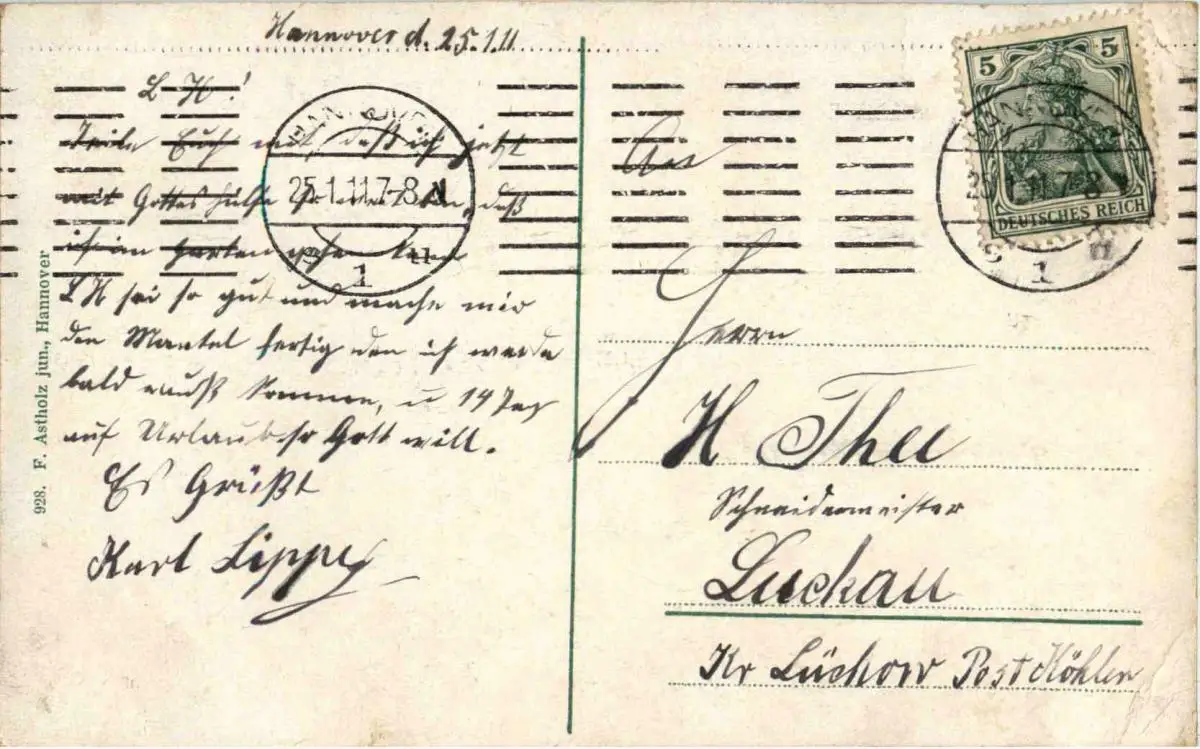 Hannover d. 25.1.11
L H!
Teile Euch mit, daß ich jetzt
mit Gottes hülfe so weit bin, daß
ich im Garten gehe kann
LH sei so gut und mache mir
den Mantel fertig den ich werde
bald rauß kommen, u 14 Tag
auf Urlaub so Gott will.
Es Grüßt
Karl Lippe
928. F. Astholz jun., Hannover
HANNOVER
25.1.11.7-8 N
1
5 5
DEUTSCHES REICH
HANNOVER
25.1.11.7-8 N
1
An
Herrn
H Thee
Schneidermeister
Luckau
Kr Lüchow Post Köhlen